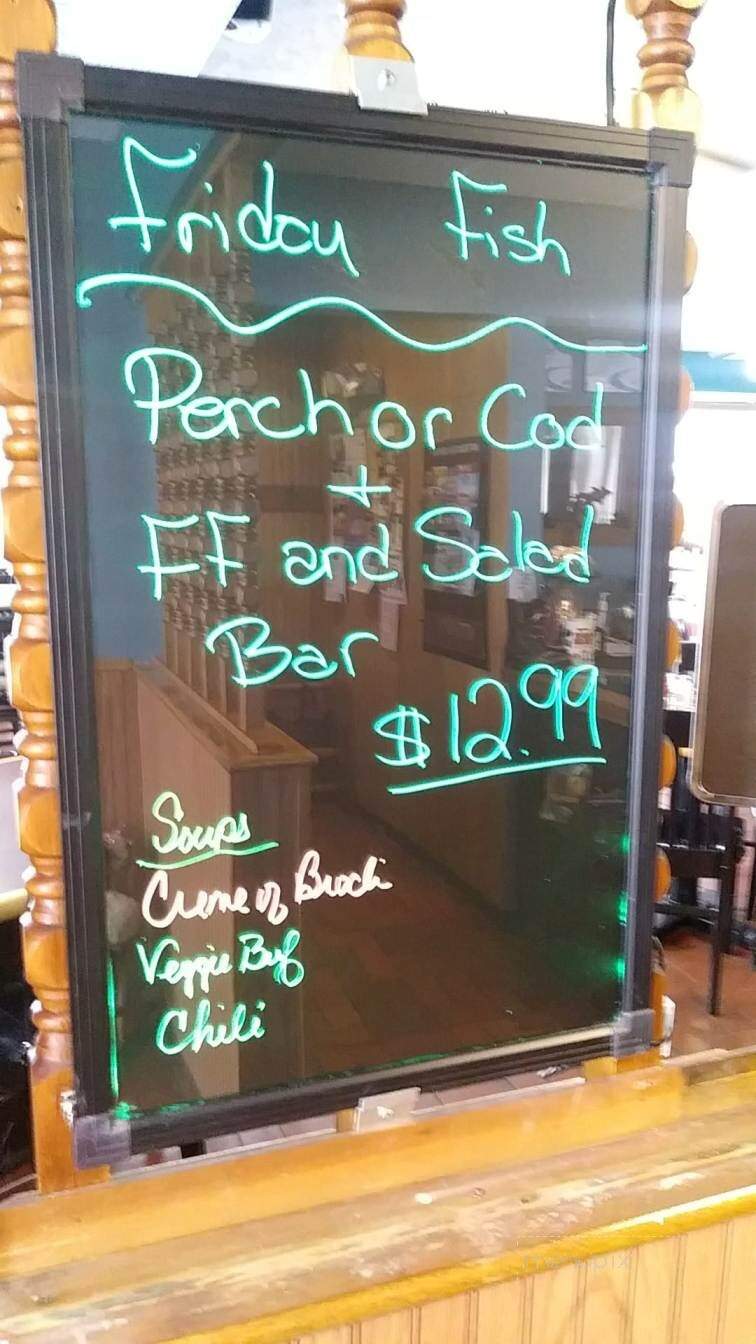 Friday Fish
Perch or Cod
+
FF and Salad
Bar
$12.99
Soups
Creme of Brocli
Veggie Beef
Chili